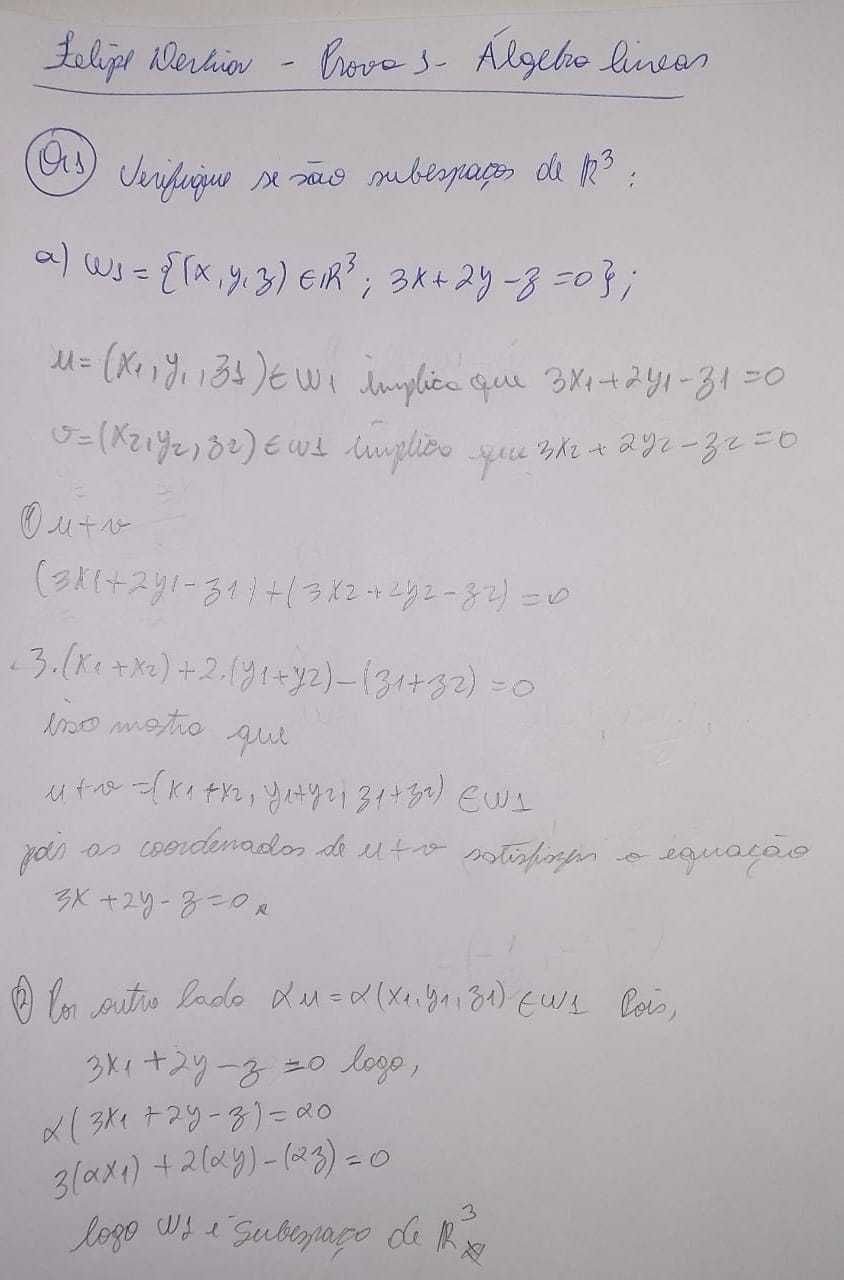 Felipe - Prova 1 - Álgebra linear
Q1) Verifique se são subespaços de ℝ³ :
a) W1 = {(x, y, z) ∈ ℝ³ ; 3x + 2y - z = 0} ;
u = (x1, y1, z1) ∈ W1 implica que 3x1 + 2y1 - z1 = 0
v = (x2, y2, z2) ∈ W1 implica que 3x2 + 2y2 - z2 = 0
① u + v
(3x1 + 2y1 - z1) + (3x2 + 2y2 - z2) = 0
3.(x1 + x2) + 2.(y1 + y2) - (z1 + z2) = 0
isso mostra que
u + v = (x1 + x2, y1 + y2, z1 + z2) ∈ W1
pois as coordenadas de u + v satisfazem a equação
3x + 2y - z = 0
② Por outro lado αu = α(x1, y1, z1) ∈ W1 Pois,
3x1 + 2y - z = 0 logo,
α(3x1 + 2y - z) = α0
3(αx1) + 2(αy) - (αz) = 0
logo W1 é subespaço de ℝ³